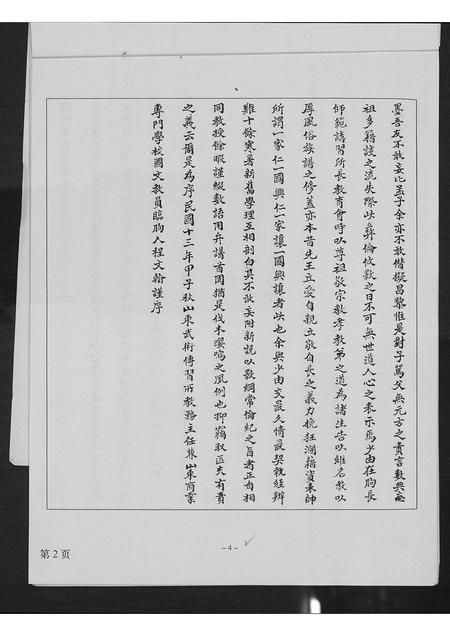 墨吾友不敢妄比孟子余亦不敢僭擬昌黎惟是對子罵父無元方之責言數典忘
祖多籍談之流失際此彝倫攸斁之日不可無世道人心之表示焉少由在朐長
師範講習所長教育會時以尊祖敬宗教孝教弟之道為諸生告以維名教以
厚風俗族譜之修蓋亦本昔先王立愛自親立敬自長之義力挽狂瀾藉資表帥
所謂一家仁一國興仁一家讓一國興讓者此也余與少由交最久情最契執經辨
難十餘寒暑新舊學理互相剖白其不敢妄附新說以斁綱常倫紀之旨者正自相
同教授餘暇謹綴數語用弁譜首固猶是伐木嚶鳴之風例也抑竊取匹夫有責
之義云爾是為序民國十三年甲子秋山東武術傳習所教務主任兼山東商業
專門學校國文教員臨朐人程文翰謹序
-4-
第2页